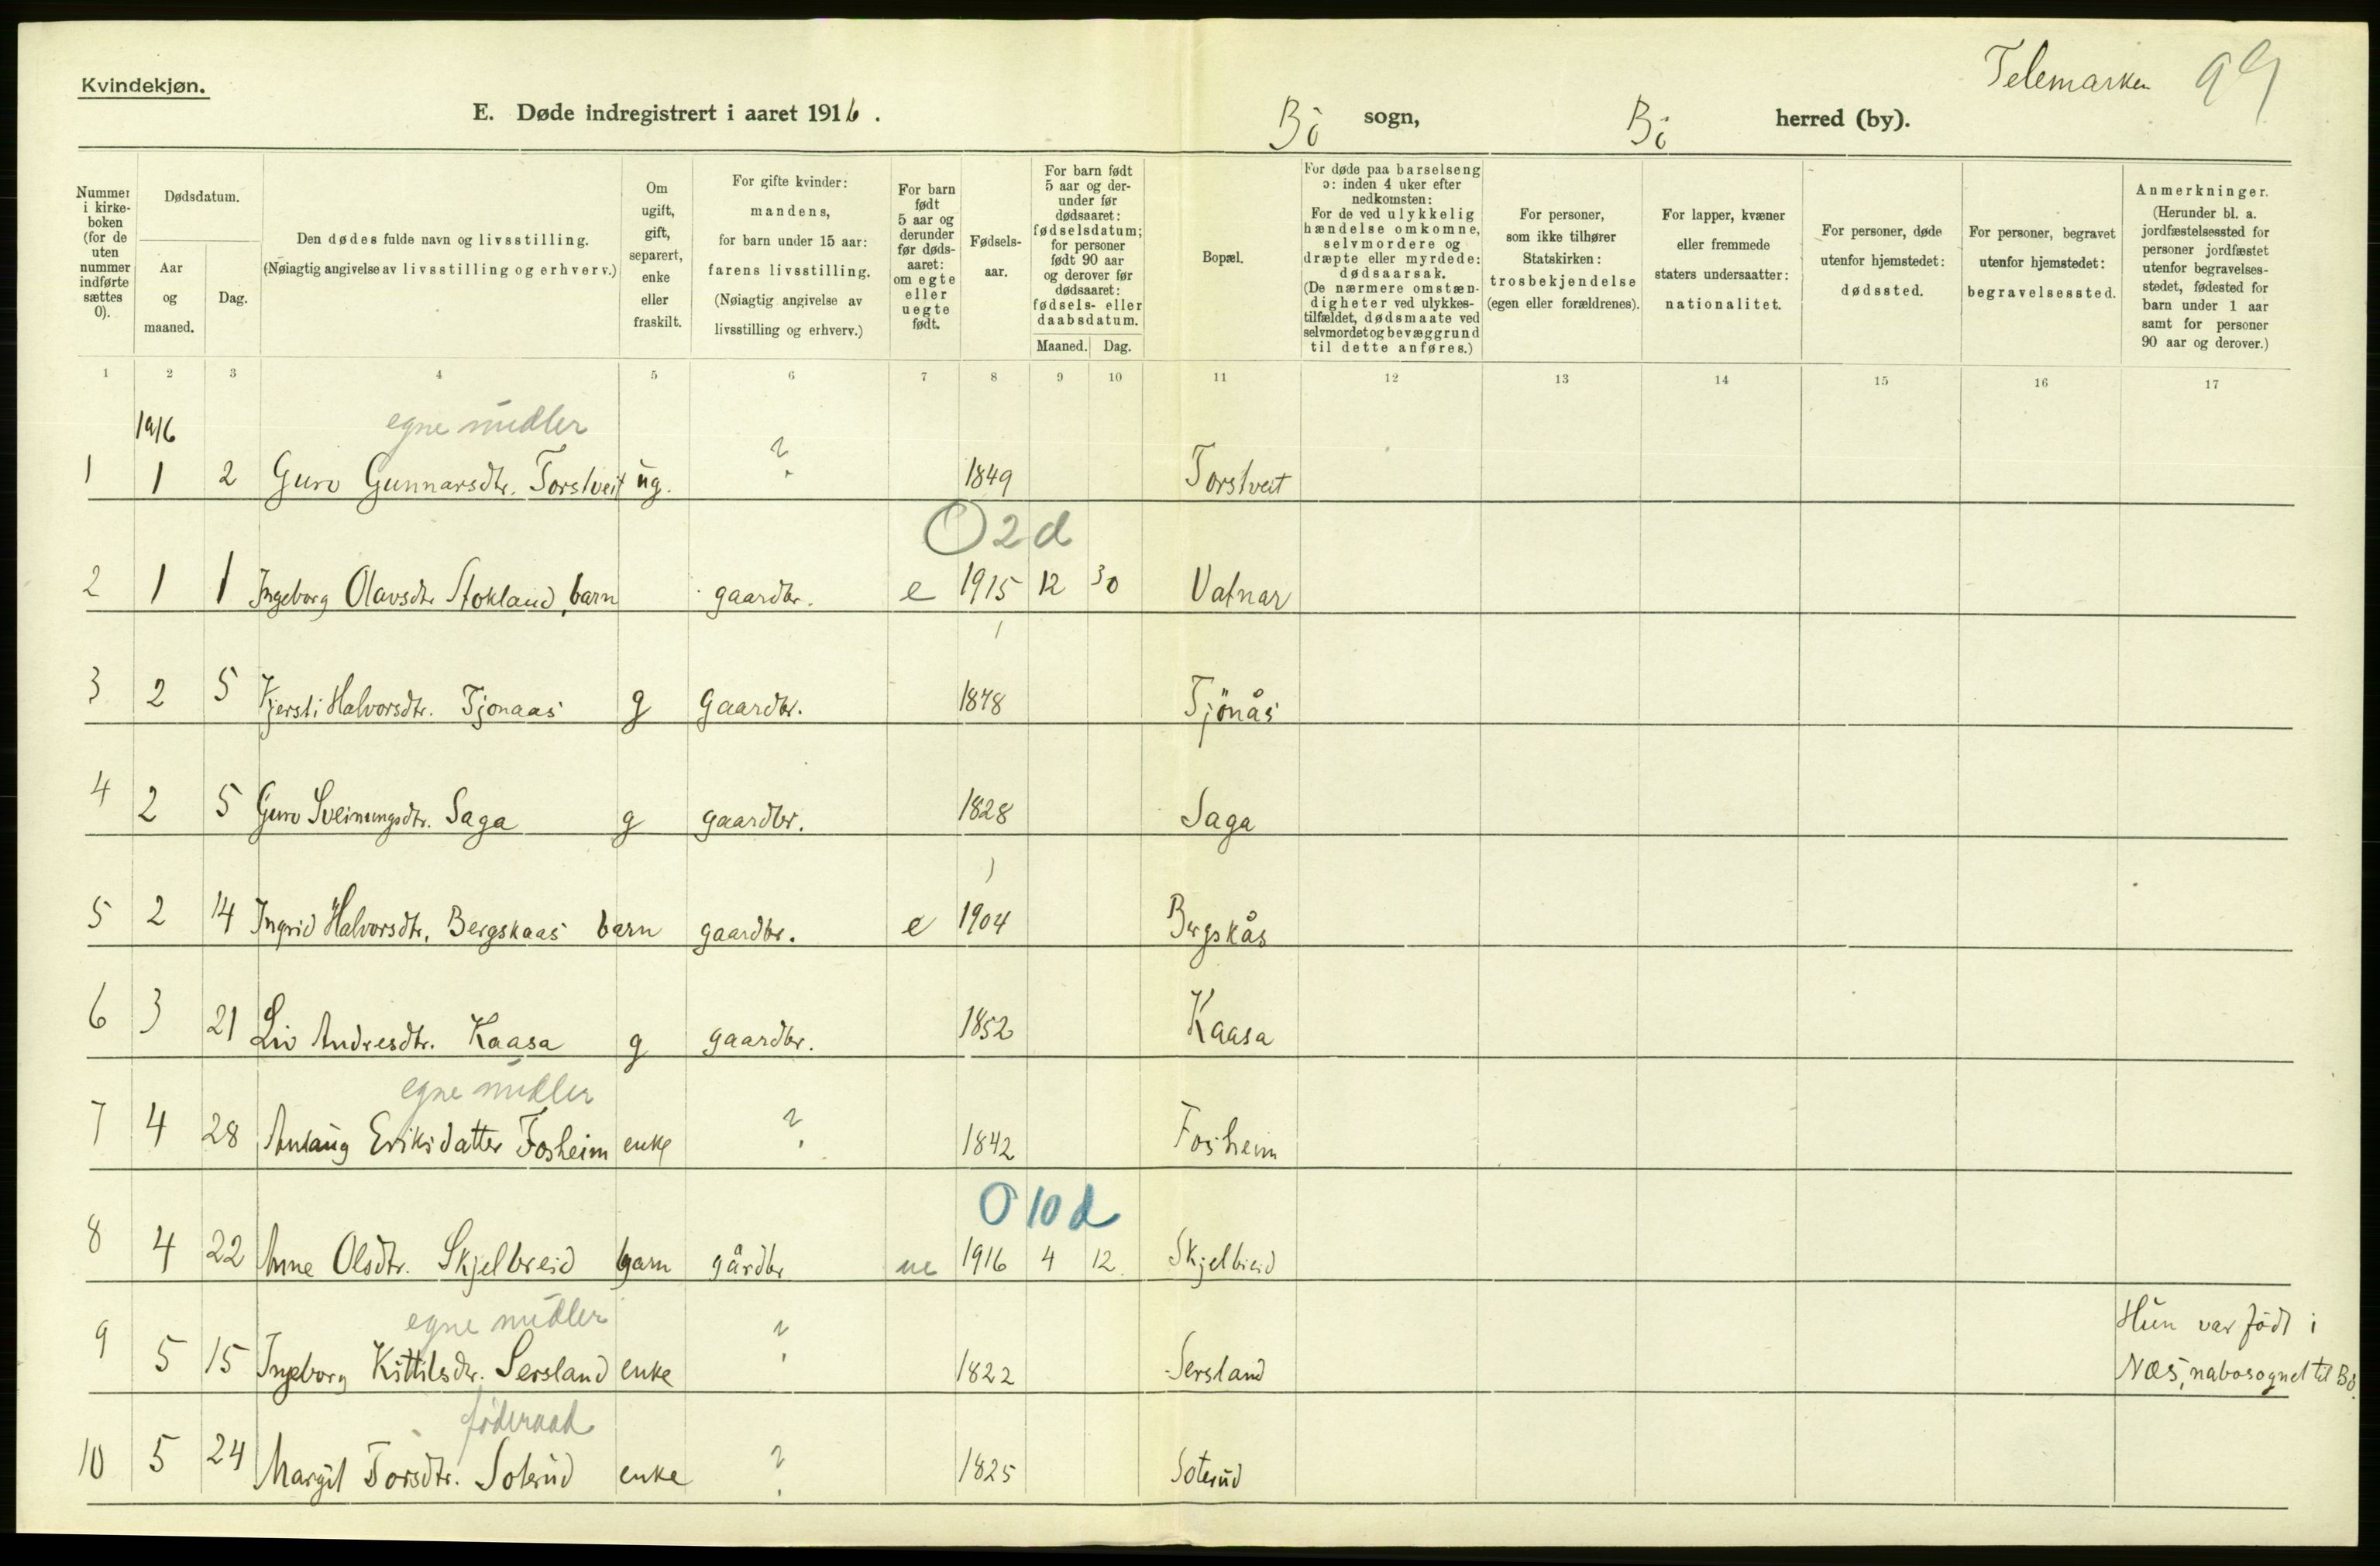 Kvindekjøn.
Telemarken 99
E. Døde indregistrert i aaret 1916. Bö sogn, Bö herred (by).
Nummer i kirkeboken (for de uten nummer indførte sættes 0).
Dødsdatum.
Aar og maaned.
Dag.
Den dødes fulde navn og livsstilling.
(Nøiagtig angivelse av livsstilling og erhverv.)
Om ugift, gift, separert, enke eller fraskilt.
For gifte kvinder: mandens, for barn under 15 aar: farens livsstilling. (Nøiagtig angivelse av livsstilling og erhverv.)
For barn født 5 aar og derunder før dødsaaret: om egte eller uegte født.
Fødselsaar.
For barn født 5 aar og derunder før dødsaaret: fødselsdatum; for personer født 90 aar og derover før dødsaaret: fødsels- eller daabsdatum.
Maaned. Dag.
Bopæl.
For døde paa barselseng ɔ: inden 4 uker efter nedkomsten: For de ved ulykkelig hændelse omkomne, selvmordere og dræpte eller myrdede: dødsaarsak. (De nærmere omstændigheter ved ulykkestilfældet, dødsmaate ved selvmordet og bevæggrund til dette anføres.)
For personer, som ikke tilhører Statskirken: trosbekjendelse (egen eller forældrenes).
For lapper, kvæner eller fremmede staters undersaatter: nationalitet.
For personer, døde utenfor hjemstedet: dødssted.
For personer, begravet utenfor hjemstedet: begravelsessted.
Anmerkninger. (Herunder bl. a. jordfæstelsessted for personer jordfæstet utenfor begravelsesstedet, fødested for barn under 1 aar samt for personer 90 aar og derover.)
1 2 3 4 5 6 7 8 9 10 11 12 13 14 15 16 17
1916 egne midler
1 1 2 Guro Gunnarsdtr. Torstveit ug. ? 1849 Torstveit
O 2 d
2 1 1 Ingeborg Olavsdtr Stokland, barn gaardbr. e 1915 12 30 Vatnar
3 2 5 Kjersti Halvorsdtr. Tjonaas g Gaardbr. 1878 Tjönås
4 2 5 Guro Sveinungsdtr. Saga g gaardbr. 1828 Saga
5 2 14 Ingrid Halvorsdtr. Bergskaas barn gaardbr. e 1904 Bergskås
6 3 21 Liv Andresdtr. Kaasa g gaardbr. 1852 Kaasa
egne midler
7 4 28 Anlaug Eriksdatter Fosheim enke ? 1842 Fosheim
O 10 d
8 4 22 Anne Olsdtr. Skjelbreid barn gårdbr ue 1916 4 12. Skjelbreid
egne midler Hun var född i
9 5 15 Ingeborg Kittilsdtr. Sersland enke ? 1822 Sersland Næs, nabosognet til Bö.
föderaad
10 5 24 Margit Torsdtr. Soterud enke ? 1825 Soterud